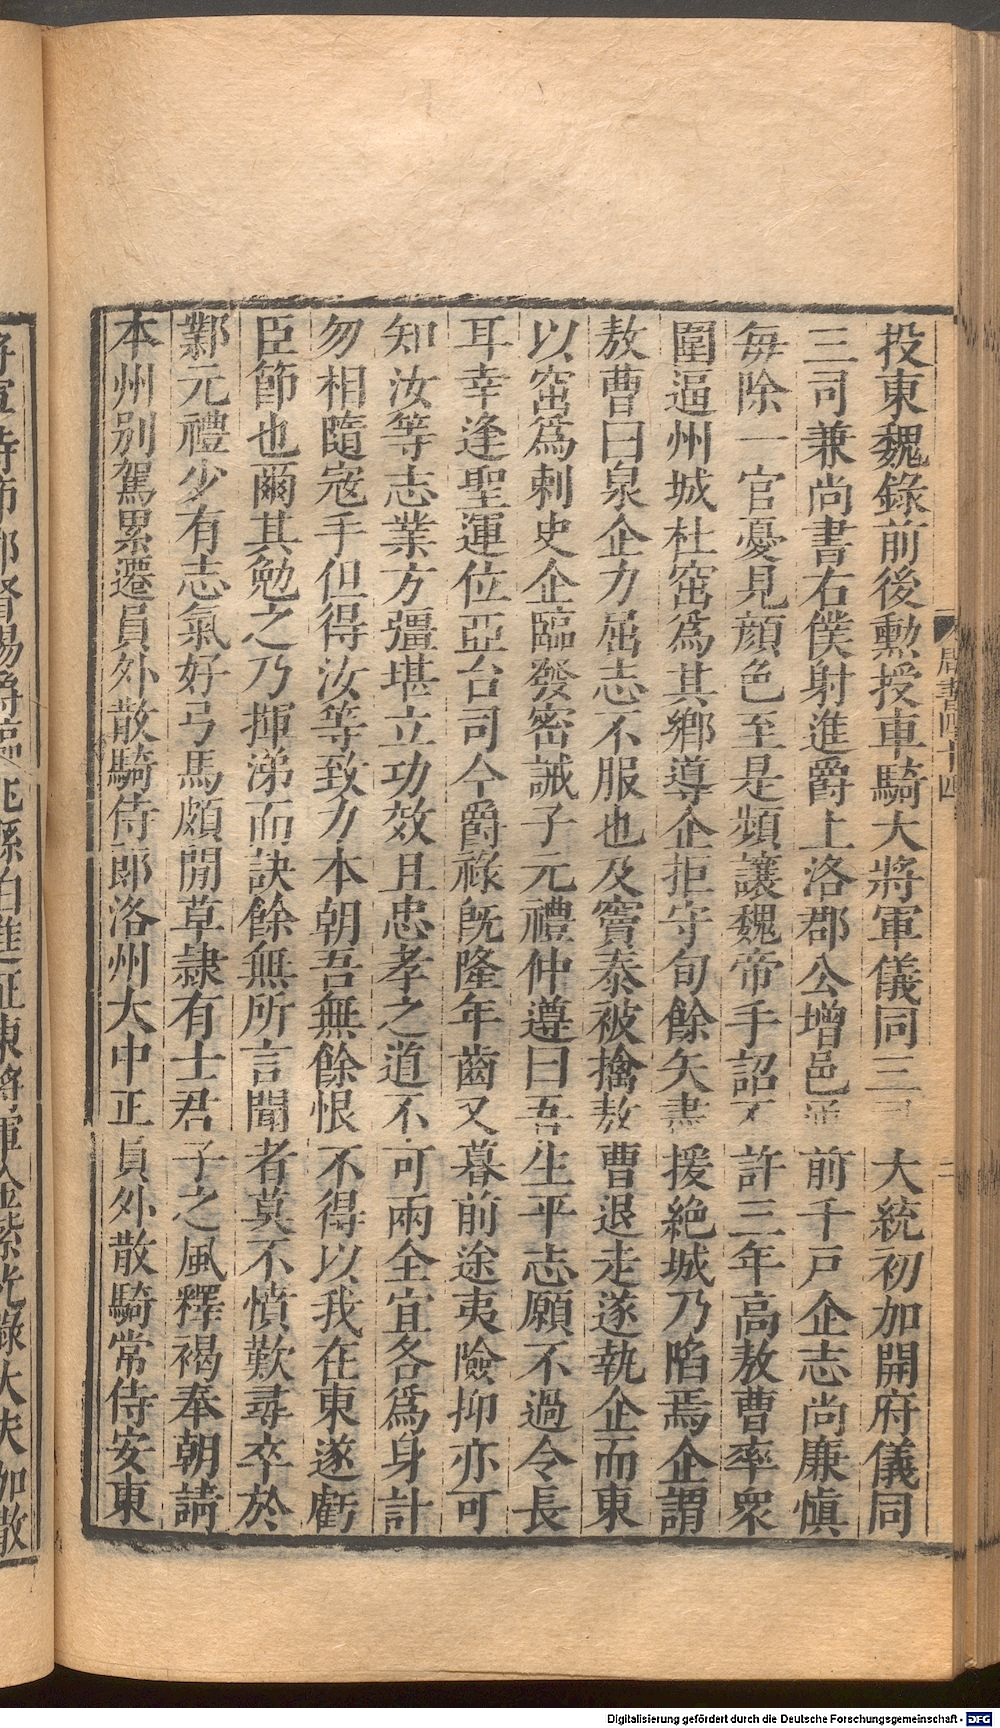 投東魏錄前後勳授車騎大將軍儀同三 大統初加開府儀同
三司兼尚書右僕射進爵上洛郡公增邑通前千戸企志尚廉愼
每除一官憂見顏色至是頻讓魏帝手詔不許三年高敖曹率衆
圍逼州城杜窋爲其鄉導企拒守旬餘矢盡援絶城乃陷焉企謂
敖曹曰泉企力屈志不服也及竇泰被擒敖曹退走遂執企而東
以窋爲刺史企臨發密誡子元禮仲遵曰吾生平志願不過令長
耳幸逢聖運位亞台司今爵祿旣隆年齒又暮前途夷險抑亦可
知汝等志業方彊堪立功效且忠孝之道不可兩全宜各爲身計
勿相隨寇手但得汝等致力本朝吾無餘恨不得以我在東遂虧
臣節也爾其勉之乃揮涕而訣餘無所言聞者莫不憤歎尋卒於
鄴元禮少有志氣好弓馬頗閒草隷有士君子之風釋褐奉朝請
本州别駕累遷員外散騎侍郎洛州大中正員外散騎常侍安東
周書四十四
二
持節都督賜爵臨洮縣伯進征東將軍金紫光祿大夫加散
Digitalisierung gefördert durch die Deutsche Forschungsgemeinschaft - DFG